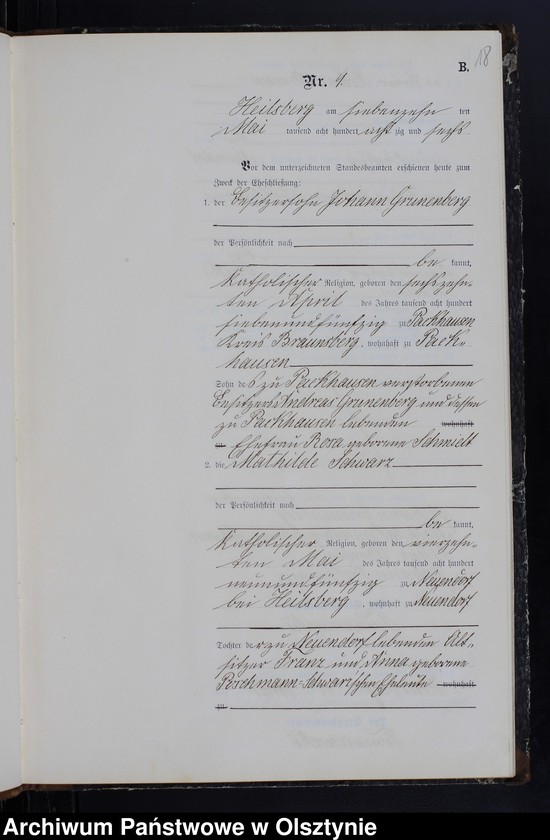 18
B.
Nr. 4.
Heilsberg am siebenzehn ten
Mai tausend acht hundert acht zig und sechs
Vor dem unterzeichneten Standesbeamten erschienen heute zum
Zweck der Eheschließung:
1. der Besitzersohn Johann Grunenberg
der Persönlichkeit nach
be kannt,
katholischer Religion, geboren den sechszehn-
ten April des Jahres tausend acht hundert
siebenundfünfzig zu Packhausen
Kreis Braunsberg, wohnhaft zu Pack-
hausen
Sohn des zu Packhausen verstorbenen
Besitzers Andreas Grunenberg und dessen
zu Packhausen lebenden wohnhaft
zu Ehefrau Rosa geborene Schmidt
2. die Mathilde Schwarz
der Persönlichkeit nach
be kannt,
katholischer Religion, geboren den vierzehn-
ten Mai des Jahres tausend acht hundert
neunundfünfzig zu Neuendorf
bei Heilsberg, wohnhaft zu Neuendorf
Tochter der zu Neuendorf lebenden Alt-
sitzer Franz und Anna geborene
Poschmann-Schwarz'schen Eheleute wohnhaft
zu
Archiwum Państwowe w Olsztynie